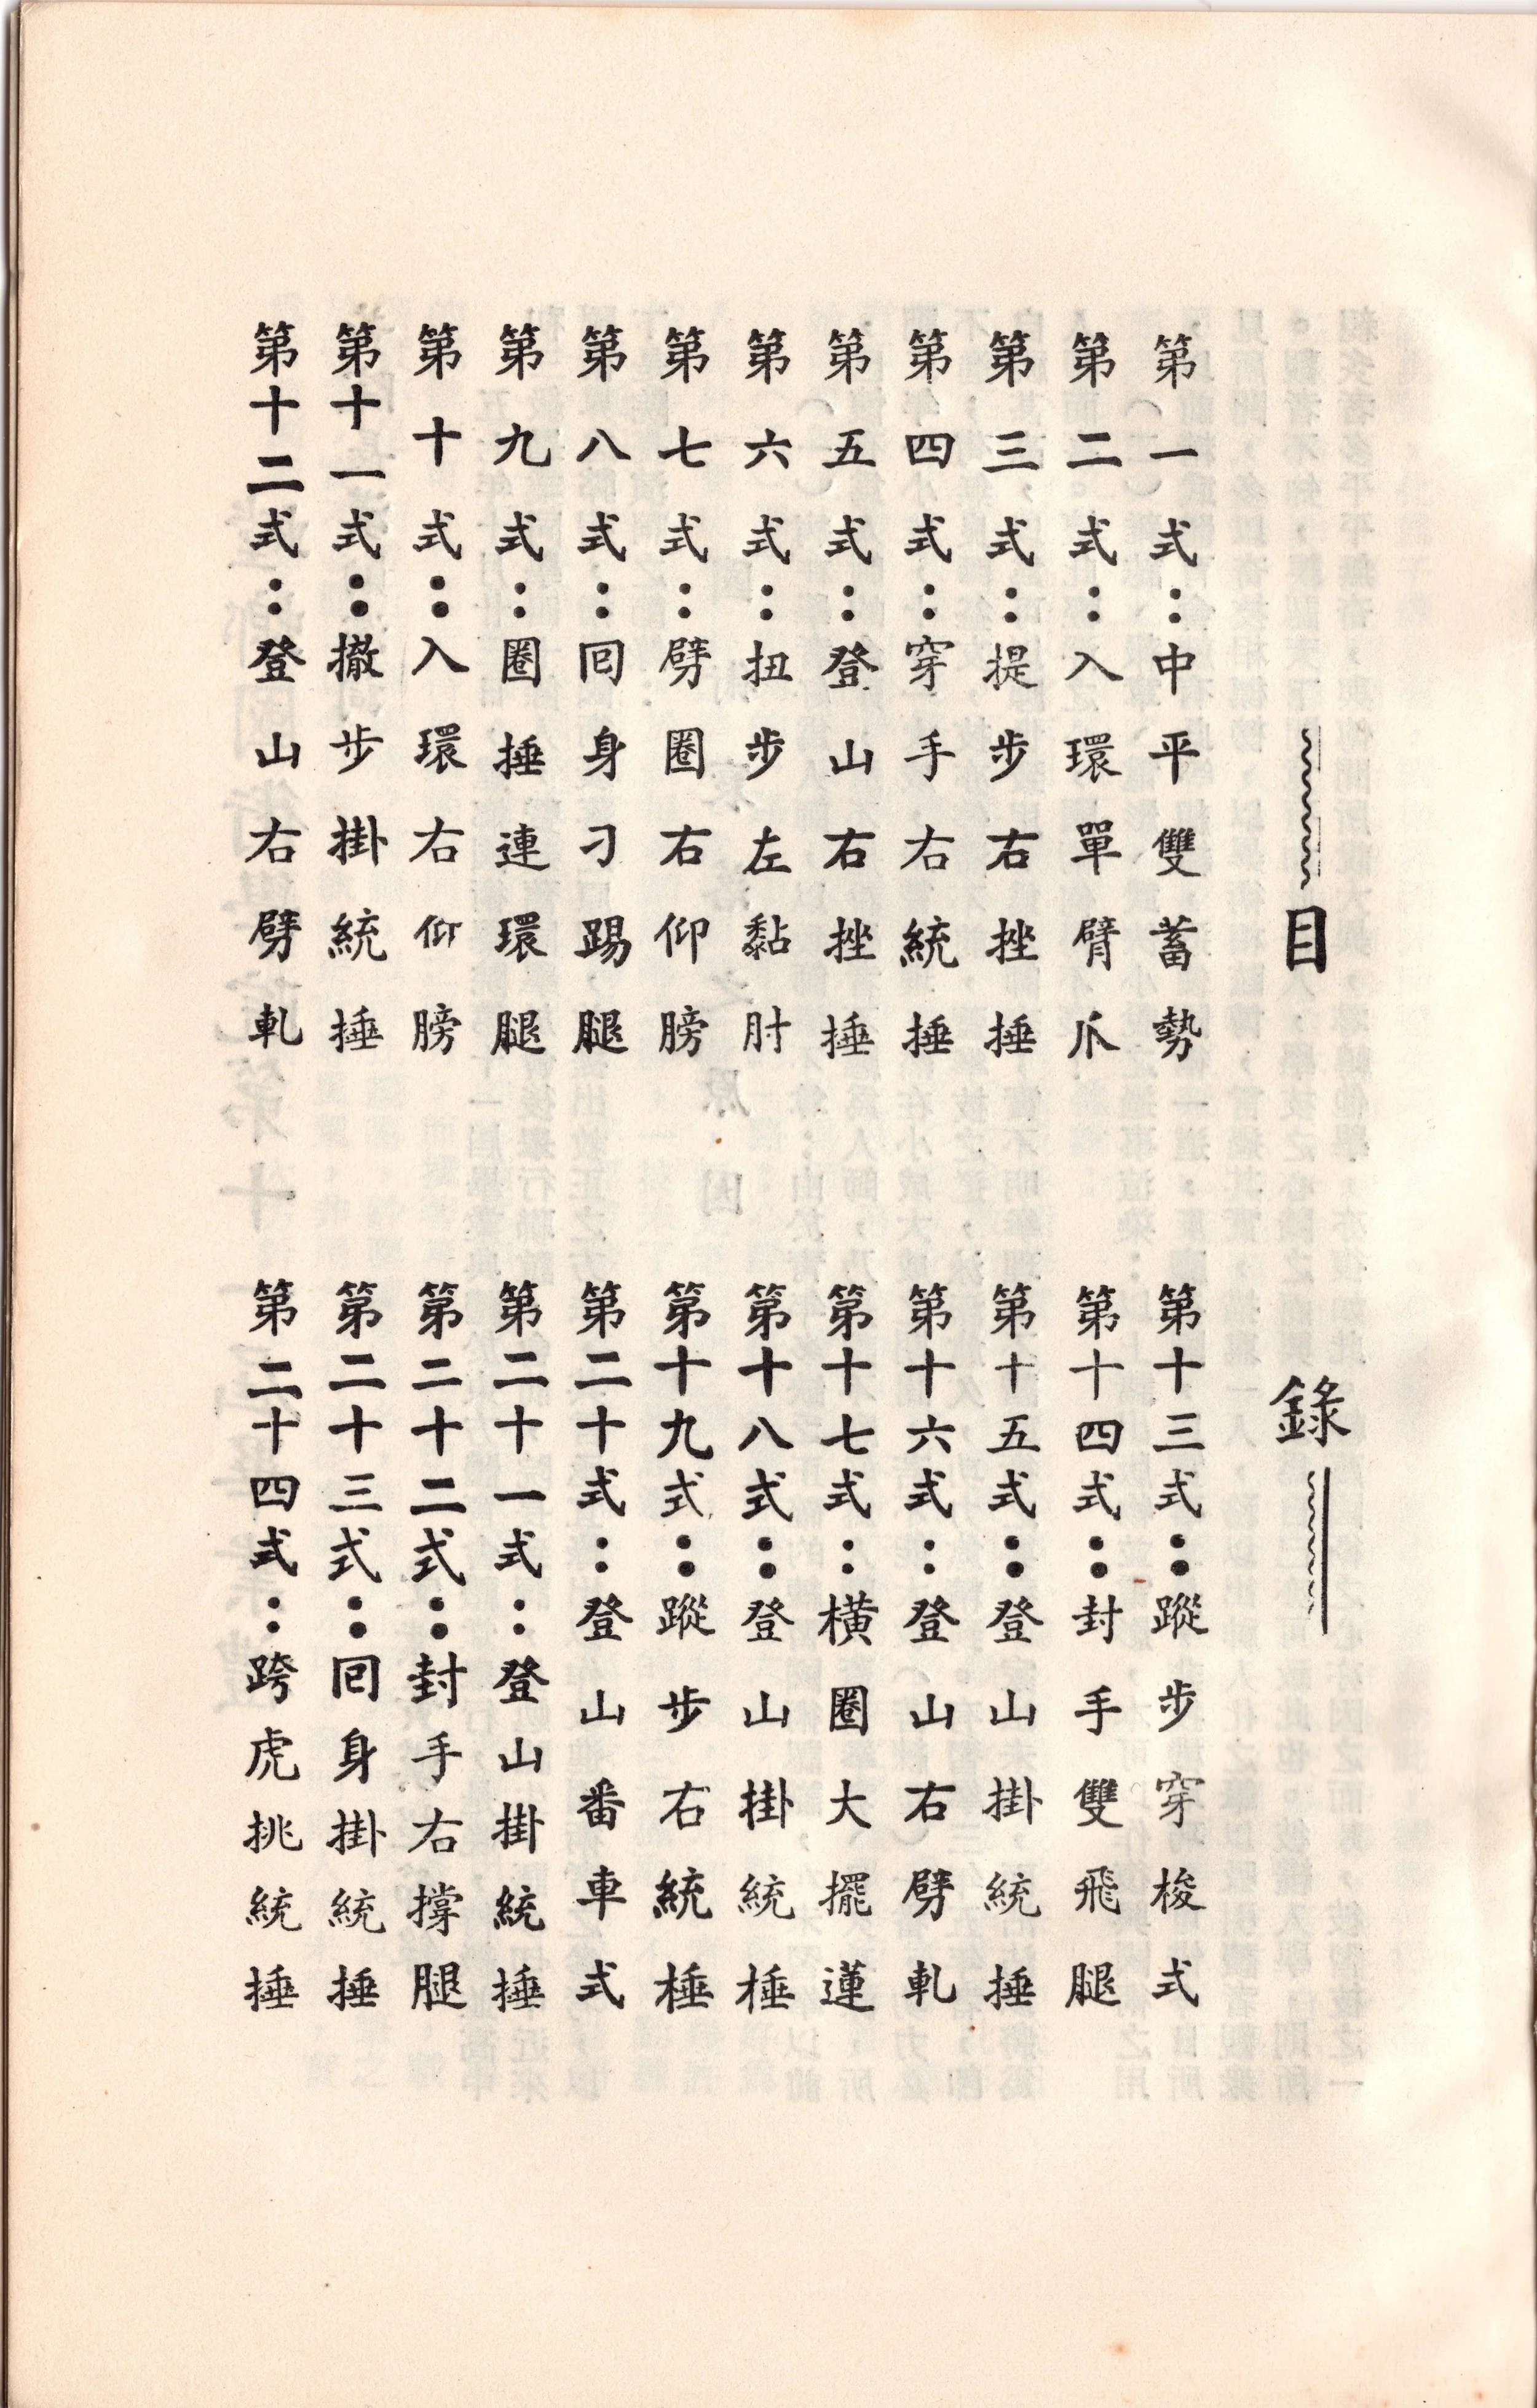 目錄
第一式：中平雙蓄勢
第二式：入環單臂爪
第三式：提步右挫捶
第四式：穿手右統捶
第五式：登山右挫捶
第六式：扭步左黏肘
第七式：劈圈右仰膀
第八式：囘身刁踢腿
第九式：圈捶連環腿
第十式：入環右仰膀
第十一式：撤步掛統捶
第十二式：登山右劈軋
第十三式：蹤步穿梭式
第十四式：封手雙飛腿
第十五式：登山掛統捶
第十六式：登山右劈軋
第十七式：橫圈大擺蓮
第十八式：登山掛統棰
第十九式：蹤步右統棰
第二十式：登山番車式
第二十一式：登山掛統捶
第二十二式：封手右撐腿
第二十三式：囘身掛統捶
第二十四式：跨虎挑統捶